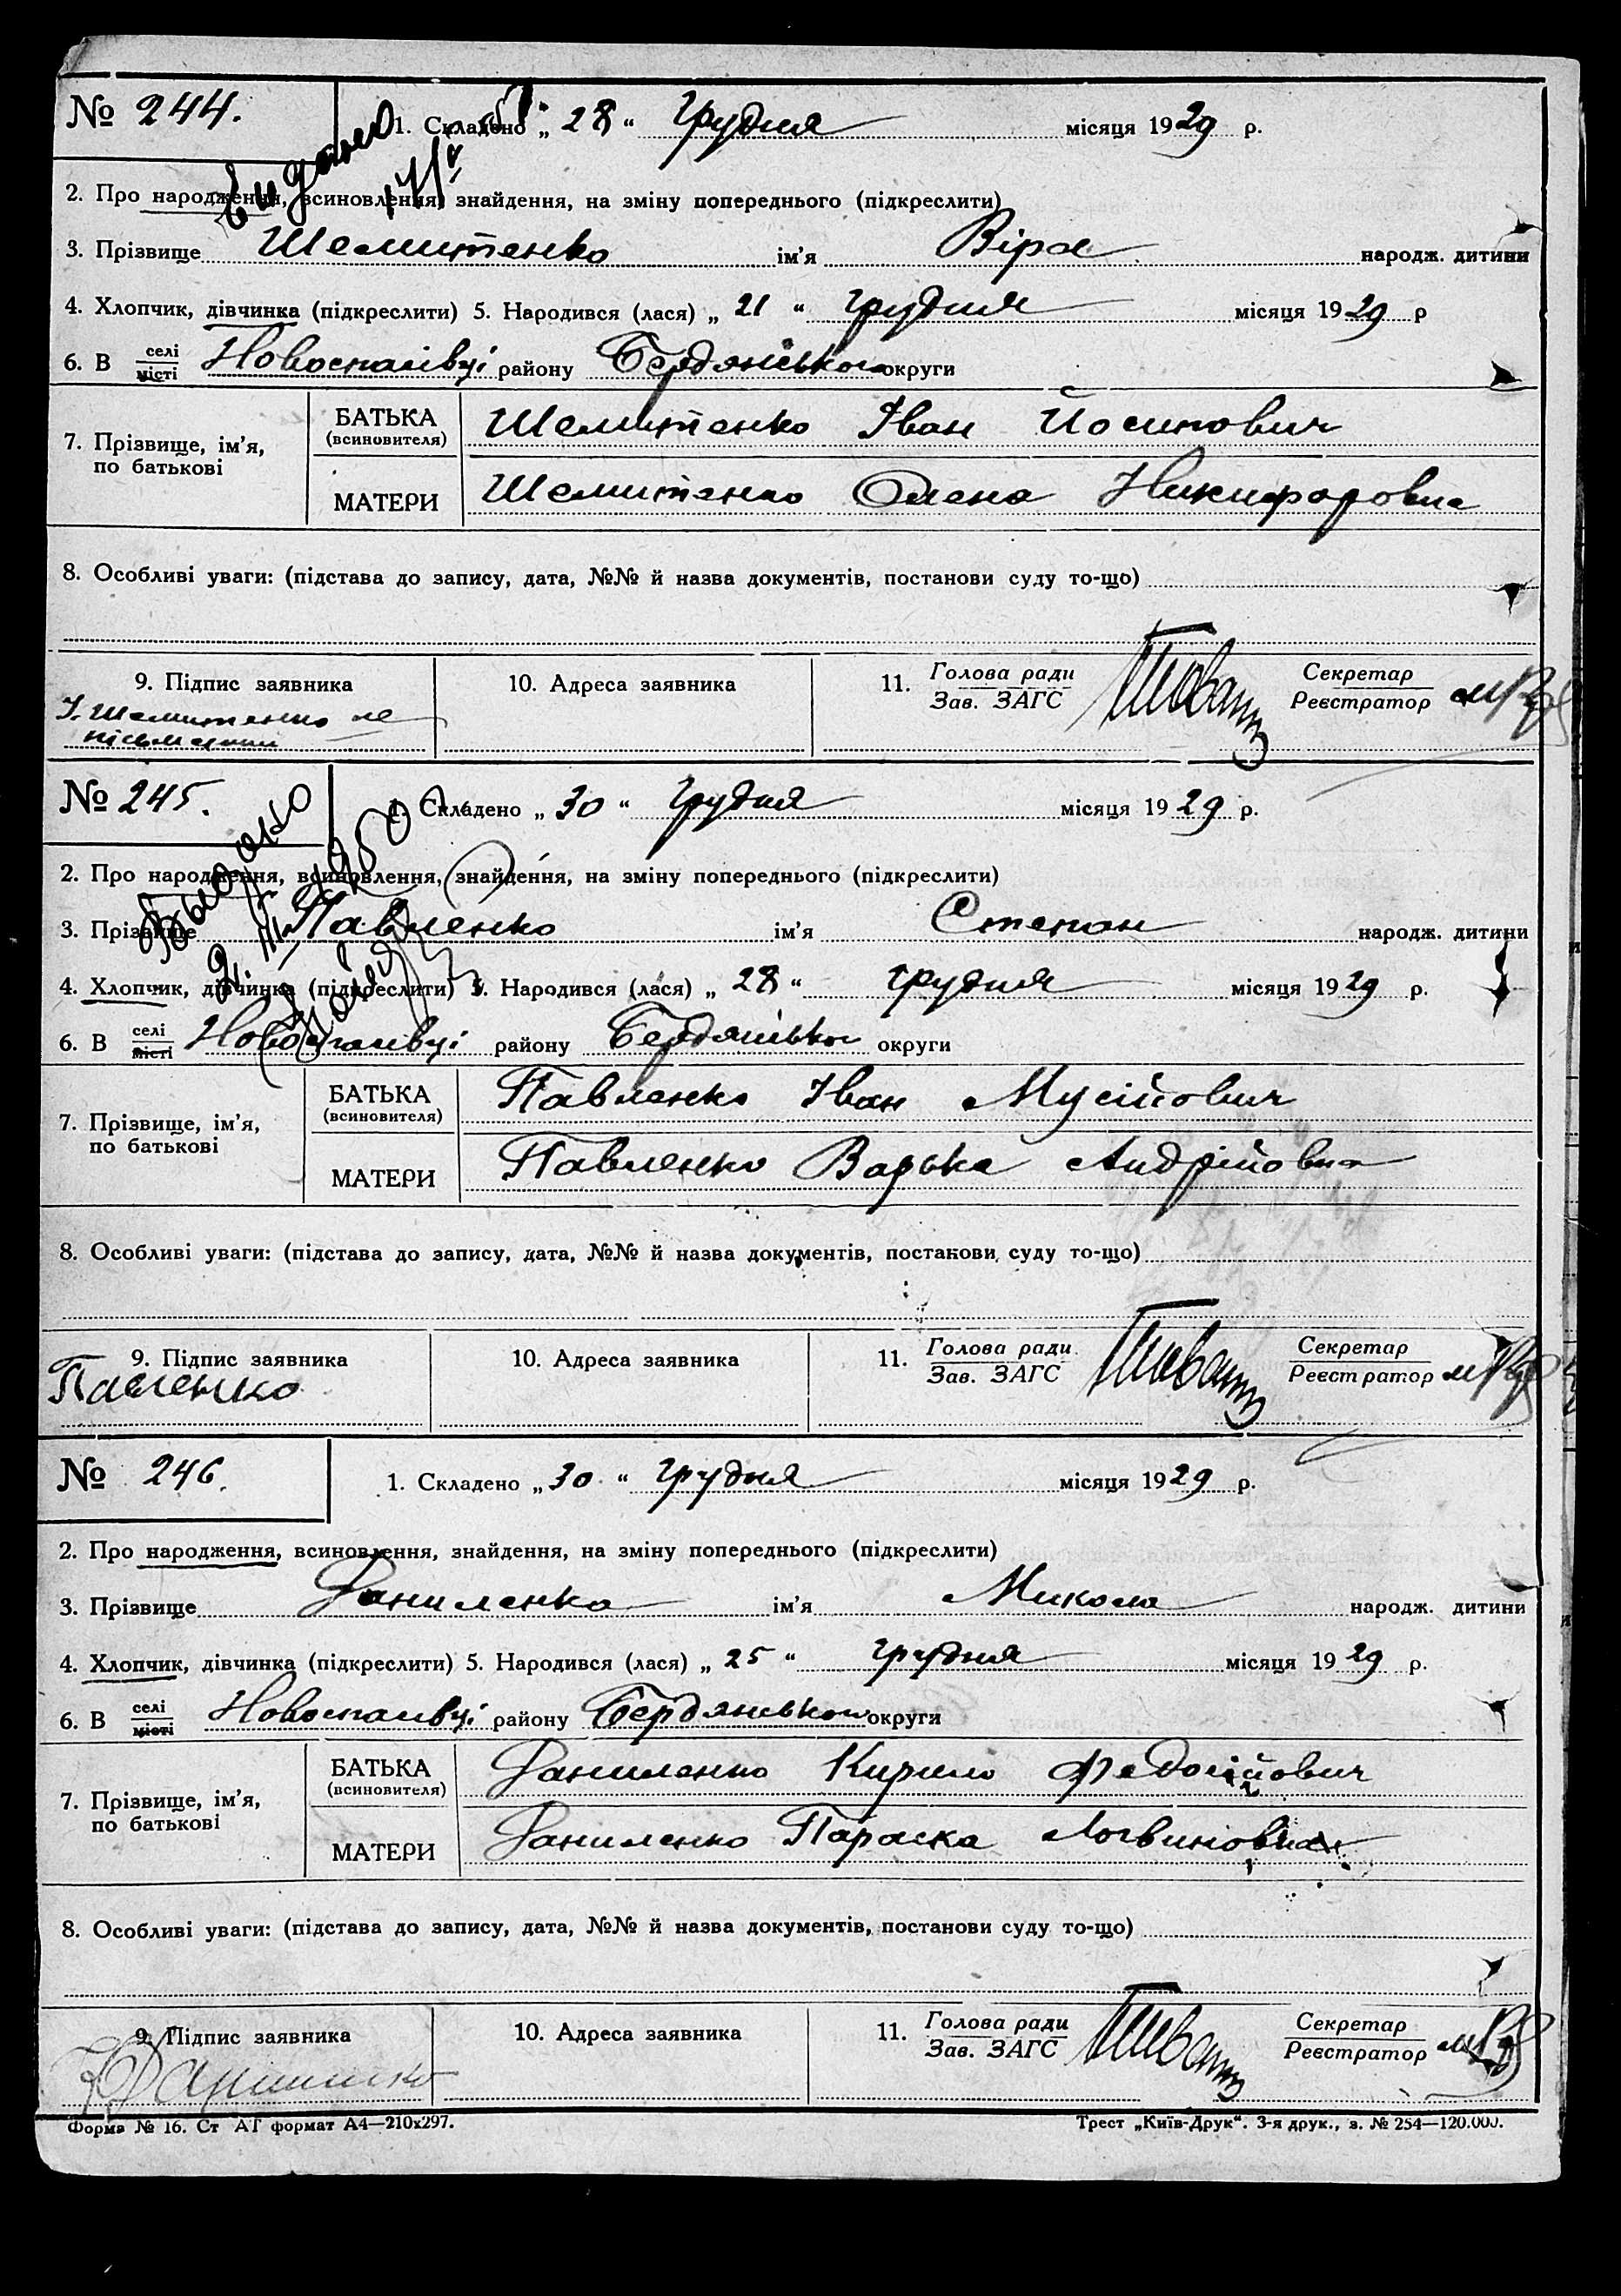 № 244.
1. Складено „ 28 “ грудня місяця 1929 р.
Видано
2. Про народження, всиновлення, знайдення, на зміну попереднього (підкреслити)
3. Прізвище Шемитенко ім’я Віра народж. дитини
4. Хлопчик, дівчинка (підкреслити) 5. Народився (лася) „ 21 “ грудня місяця 1929 р
6. В селі
місті Новоспаівці району Бердянського округи
7. Прізвище, ім’я,
по батькові
БАТЬКА
(всиновителя)
Шемитенко Іван Йосипович
МАТЕРИ
Шемитенко Олена Никифоровна
8. Особливі уваги: (підстава до запису, дата, №№ й назва документів, постанови суду то-що)
9. Підпис заявника
І. Шемитенко не
письменний
10. Адреса заявника
11. Голова ради
Зав. ЗАГС
Секретар
Реєстратор
№ 245.
1. Складено „ 30 “ грудня місяця 1929 р.
Выдано
2. Про народження, всиновлення, знайдення, на зміну попереднього (підкреслити)
3. Прізвище Павленко ім’я Степан народж. дитини
4. Хлопчик, дівчинка (підкреслити) 5. Народився (лася) „ 28 “ грудня місяця 1929 р.
6. В селі
місті Новоспаівці району Бердянського округи
7. Прізвище, ім’я,
по батькові
БАТЬКА
(всиновителя)
Павленко Іван Мусійович
МАТЕРИ
Павленко Варька Андрійовна
8. Особливі уваги: (підстава до запису, дата, №№ й назва документів, постанови суду то-що)
9. Підпис заявника
Павленко
10. Адреса заявника
11. Голова ради
Зав. ЗАГС
Секретар
Реєстратор
№ 246.
1. Складено „ 30 “ грудня місяця 1929 р.
2. Про народження, всиновлення, знайдення, на зміну попереднього (підкреслити)
3. Прізвище Даниленко ім’я Микола народж. дитини
4. Хлопчик, дівчинка (підкреслити) 5. Народився (лася) „ 25 “ грудня місяця 1929 р.
6. В селі
місті Новоспаівці району Бердянського округи
7. Прізвище, ім’я,
по батькові
БАТЬКА
(всиновителя)
Даниленко Кирило Федосійович
МАТЕРИ
Даниленко Параска Логвиновна
8. Особливі уваги: (підстава до запису, дата, №№ й назва документів, постанови суду то-що)
9. Підпис заявника
10. Адреса заявника
11. Голова ради
Зав. ЗАГС
Секретар
Реєстратор
Форма № 16. Ст АТ формат А4—210х297.
Трест „Київ-Друк“. 3-я друк., з. № 254—120.000.